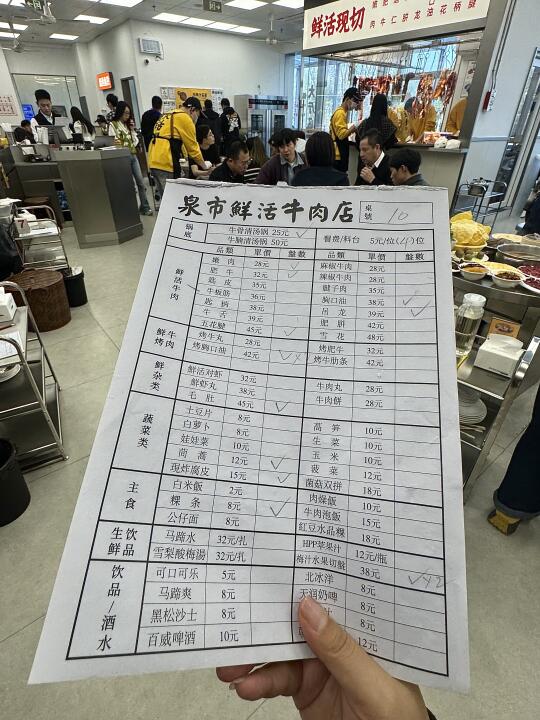 鲜活现切
泉市鲜活牛肉店
桌號 10
锅底
牛骨清汤锅 25元 ✓
牛腩清汤锅 50元
醬费/料台 5元/位(4)位
品類 單價 盤數 品類 單價 盤數
鲜活牛肉
嫩肉 28元 ✓ 麻椒牛肉 28元
肥牛 32元 ✓ 辣椒牛肉 28元
匙皮 35元 腱子肉 35元
牛板筋 36元 胸口油 38元 ✓
匙柄 38元 吊龙 39元 ✓
牛舌 39元 肥胼 42元
五花腱 45元 ✓ 雪花 48元
鲜牛烤肉
烤牛丸 28元 烤肥牛 32元
烤胸口油 42元 烤牛肋条 42元
鲜杂类
鲜活对虾 32元 牛肉丸 28元
鲜虾丸 38元 牛肉餅 28元
毛肚 45元 ✓
蔬菜类
土豆片 8元 莴笋 10元
白萝卜 8元 生菜 10元
娃娃菜 10元 玉米 10元
茼蒿 12元 ✓ 菠菜 12元
現炸腐皮 15元 ✓ 菌菇双拼 18元
主食
白米飯 2元 肉燥飯 10元
粿条 8元 ✓ 牛肉泡飯 15元
公仔面 8元 紅豆水晶粿 18元
生鮮飲品
马蹄水 32元/扎 HPP苹果汁 12元/瓶
雪梨酸梅湯 32元/扎 梅汁水果切盤 38元
饮品/酒水
可口可乐 5元 北冰洋 8元 ✓x2
马蹄爽 8元 天润奶啤 8元
黑松沙士 8元 8元
百威啤酒 10元 12元